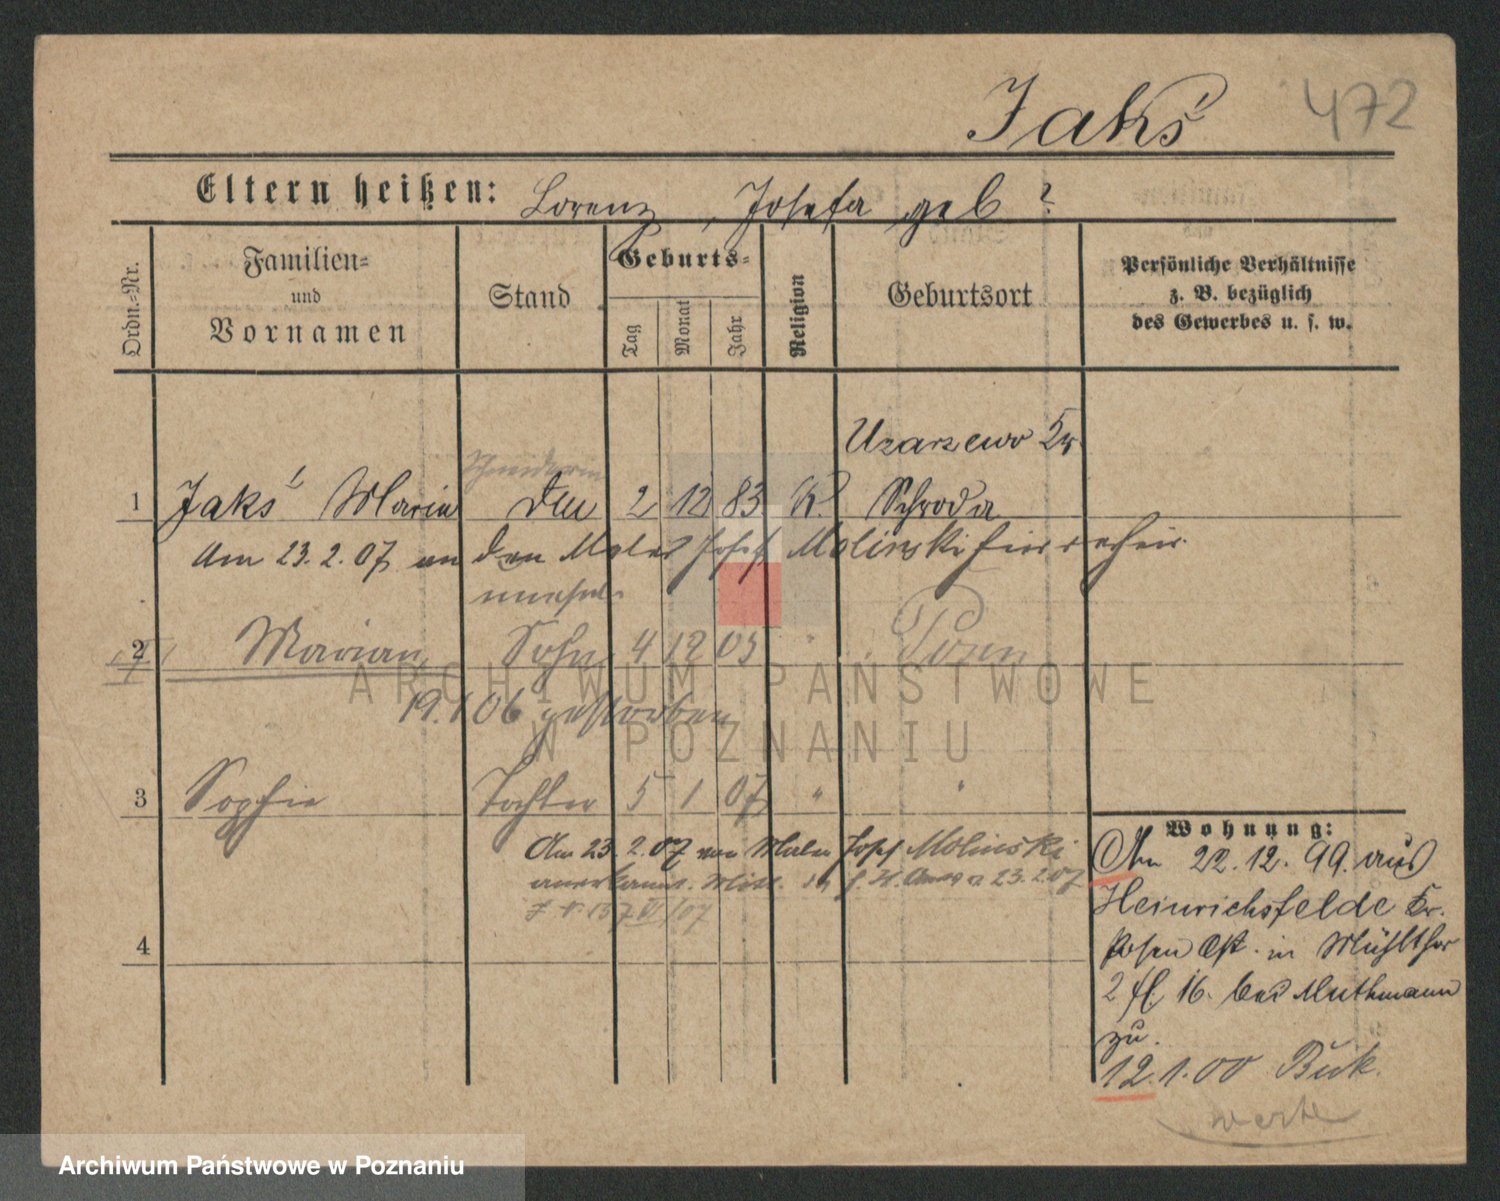 Jakś 472
Eltern heißen: Lorenz, Josefa geb ?
Ordn.=Nr.
Familien=
und
Vornamen
Stand
Geburts=
Tag
Monat
Jahr
Religion
Geburtsort
Persönliche Verhältnisse
z. B. bezüglich
des Gewerbes u. s. w.
Uzarzewo Kr.
Schneiderin
1 Jakś Maria 2 12 83 K. Schroda
Am 23. 2. 07 an den Maler Josef Molinski hier verheir.
2 Marian Sohn 4 12 05 " Posen
19.1.06 gestorben
3 Sophie Tochter 5 1 07 " "
Am 23. 2. 07 von Maler Josef Molinski
anerkannt. Mitt. 23.2.07
4
Wohnung:
Am 22.12.99 aus
Heinrichsfelde Kr.
Posen Ost in Mühlthor
2 fl. 16. bei Muthmann
zu.
12.1.00 Buk.
ARCHIWUM PAŃSTWOWE
W POZNANIU
Archiwum Państwowe w Poznaniu